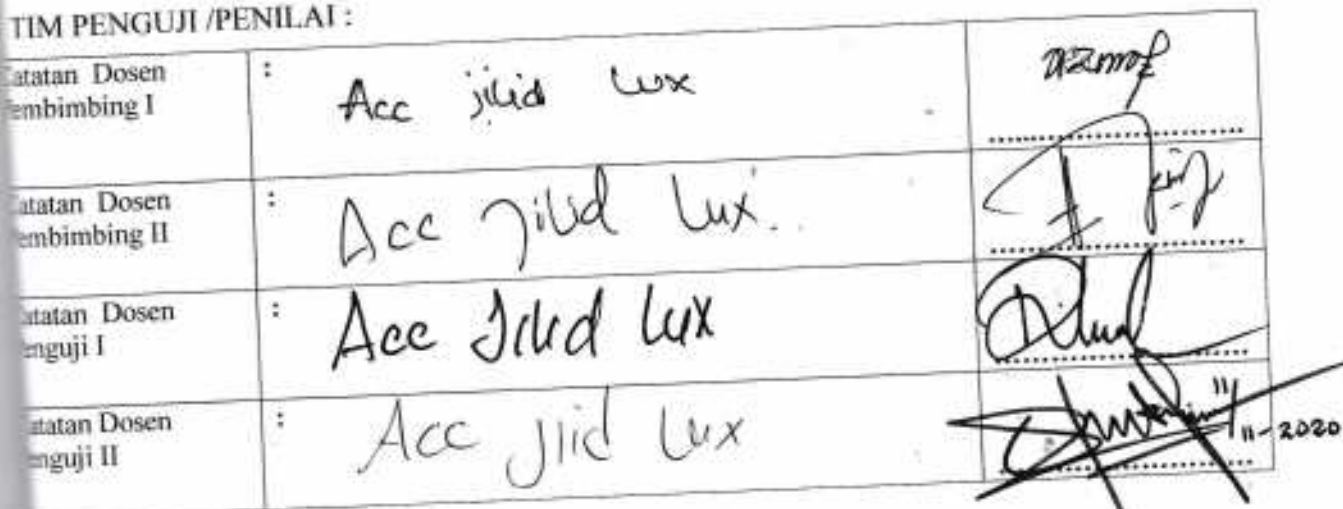 TIM PENGUJI /PENILAI :
atatan Dosen
embimbing I
: Acc jilid lux
atatan Dosen
embimbing II
: Acc jilid lux.
atatan Dosen
enguji I
: Acc Jilid lux
atatan Dosen
enguji II
: Acc jlid lux
11/11-2020